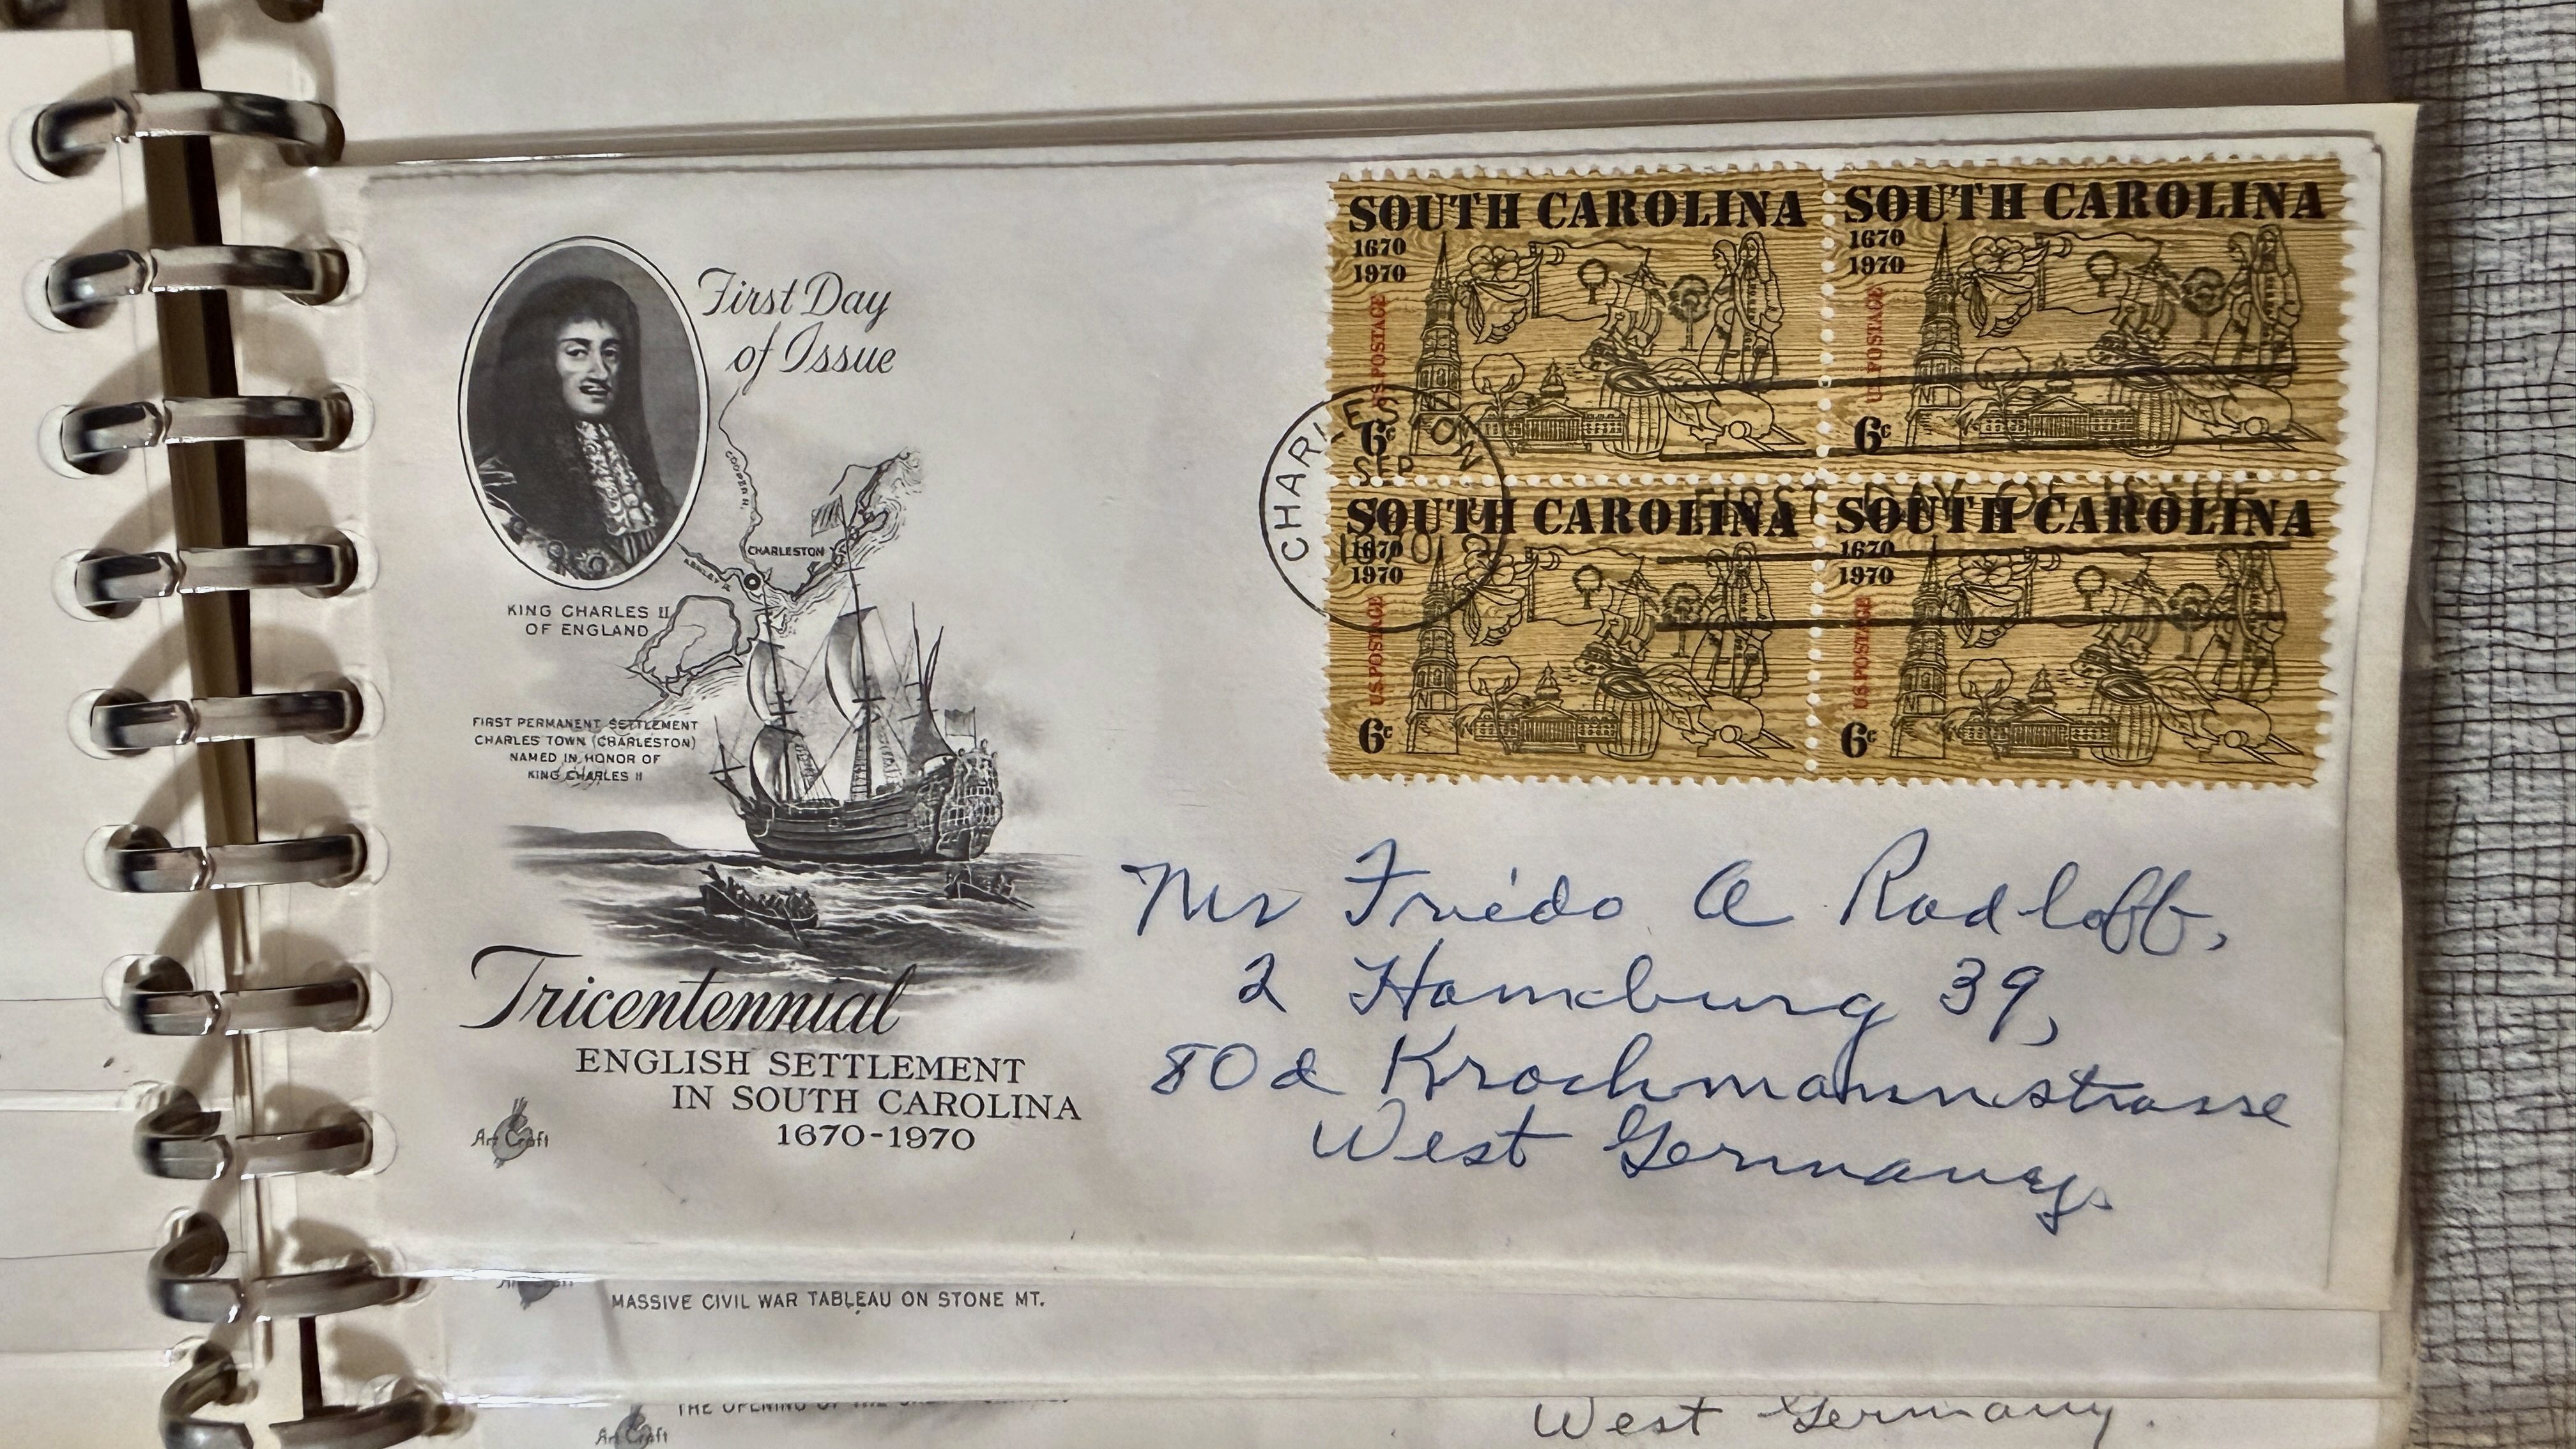 First Day
of Issue
COOPER R.
CHARLESTON
ASHLEY R.
KING CHARLES II
OF ENGLAND
FIRST PERMANENT SETTLEMENT
CHARLES TOWN (CHARLESTON)
NAMED IN HONOR OF
KING CHARLES II
Tricentennial
ENGLISH SETTLEMENT
IN SOUTH CAROLINA
1670-1970
Art Craft
SOUTH CAROLINA
1670
1970
U.S. POSTAGE
6c
SOUTH CAROLINA
1670
1970
U.S. POSTAGE
6c
SOUTH CAROLINA
1670
1970
U.S. POSTAGE
6c
SOUTH CAROLINA
1670
1970
U.S. POSTAGE
6c
CHARLESTON
SEP
FIRST DAY OF ISSUE
Mr Friedo A Radloff,
2 Hamburg 39,
80d Krochmannstrasse
West Germany.
Art Craft
MASSIVE CIVIL WAR TABLEAU ON STONE MT.
THE OPENING OF THE
Art Craft
West Germany.